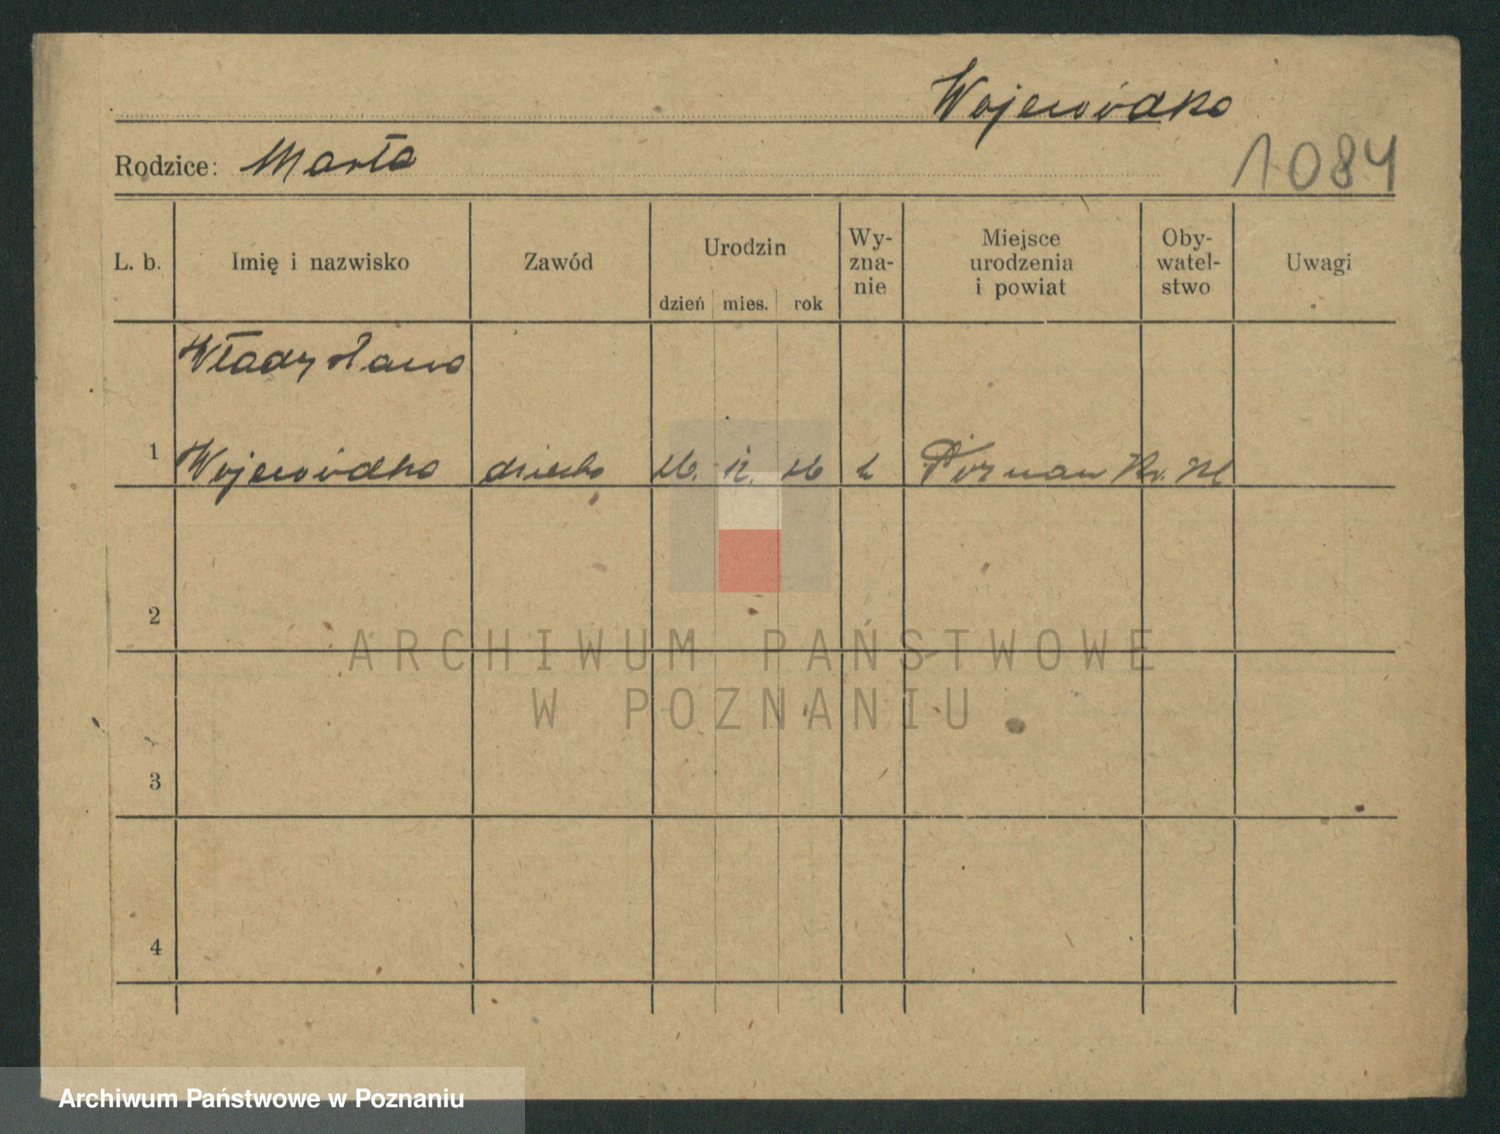 Wojewódka
Rodzice: Marta
1084
L. b. Imię i nazwisko Zawód Urodzin dzień mies. rok Wy-zna-nie Miejsce urodzenia i powiat Oby-watel-stwo Uwagi
Władysława
1 Wojewódka dziecko Poznań
2
ARCHIWUM PAŃSTWOWE
W POZNANIU
3
4
Archiwum Państwowe w Poznaniu